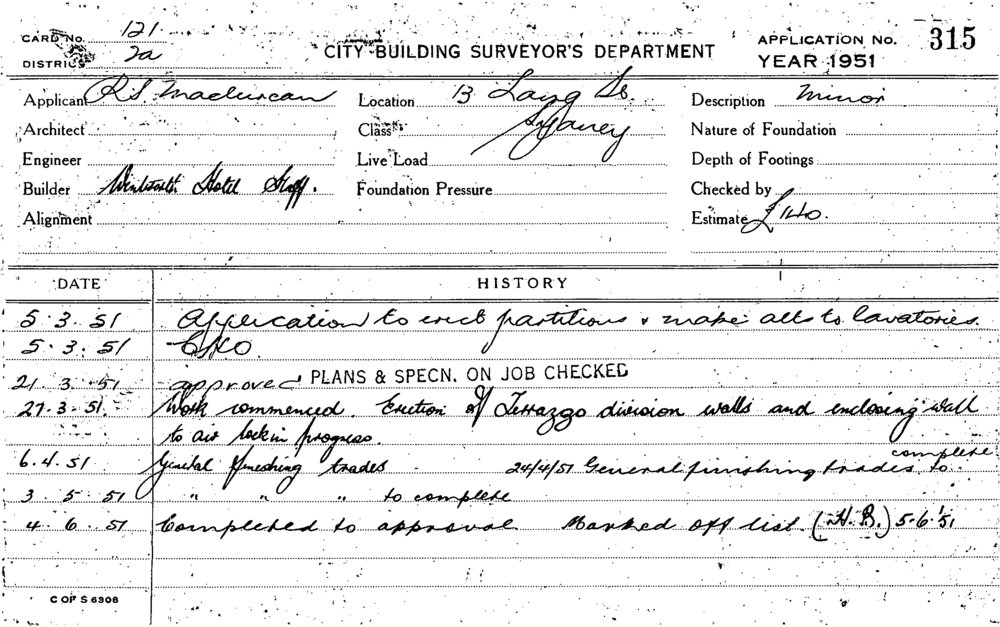 CARD No. 121
DISTRICT 2a
CITY BUILDING SURVEYOR'S DEPARTMENT
APPLICATION No. 315
YEAR 1951
Applicant R.S. Maclurcan
Location 13 Lang St.
Description Minor
Architect
Class Sydney
Nature of Foundation
Engineer
Live Load
Depth of Footings
Builder Wentworth Hotel Staff.
Foundation Pressure
Checked by
Alignment
Estimate £140.
DATE HISTORY
5.3.51 Application to erect partitions & make alts to lavatories.
5.3.51 CHO.
21.3.51 approved PLANS & SPECN. ON JOB CHECKED
27.3.51. Work commenced. Erection of Terrazgo division walls and enclosing wall
to air lock in progress.
6.4.51 General finishing trades 24/4/51 General finishing trades to complete
3.5.51 " " " to complete
4.6.51 Completed to approval Marked off list. (H.B.) 5.6.51
C OF S 6306